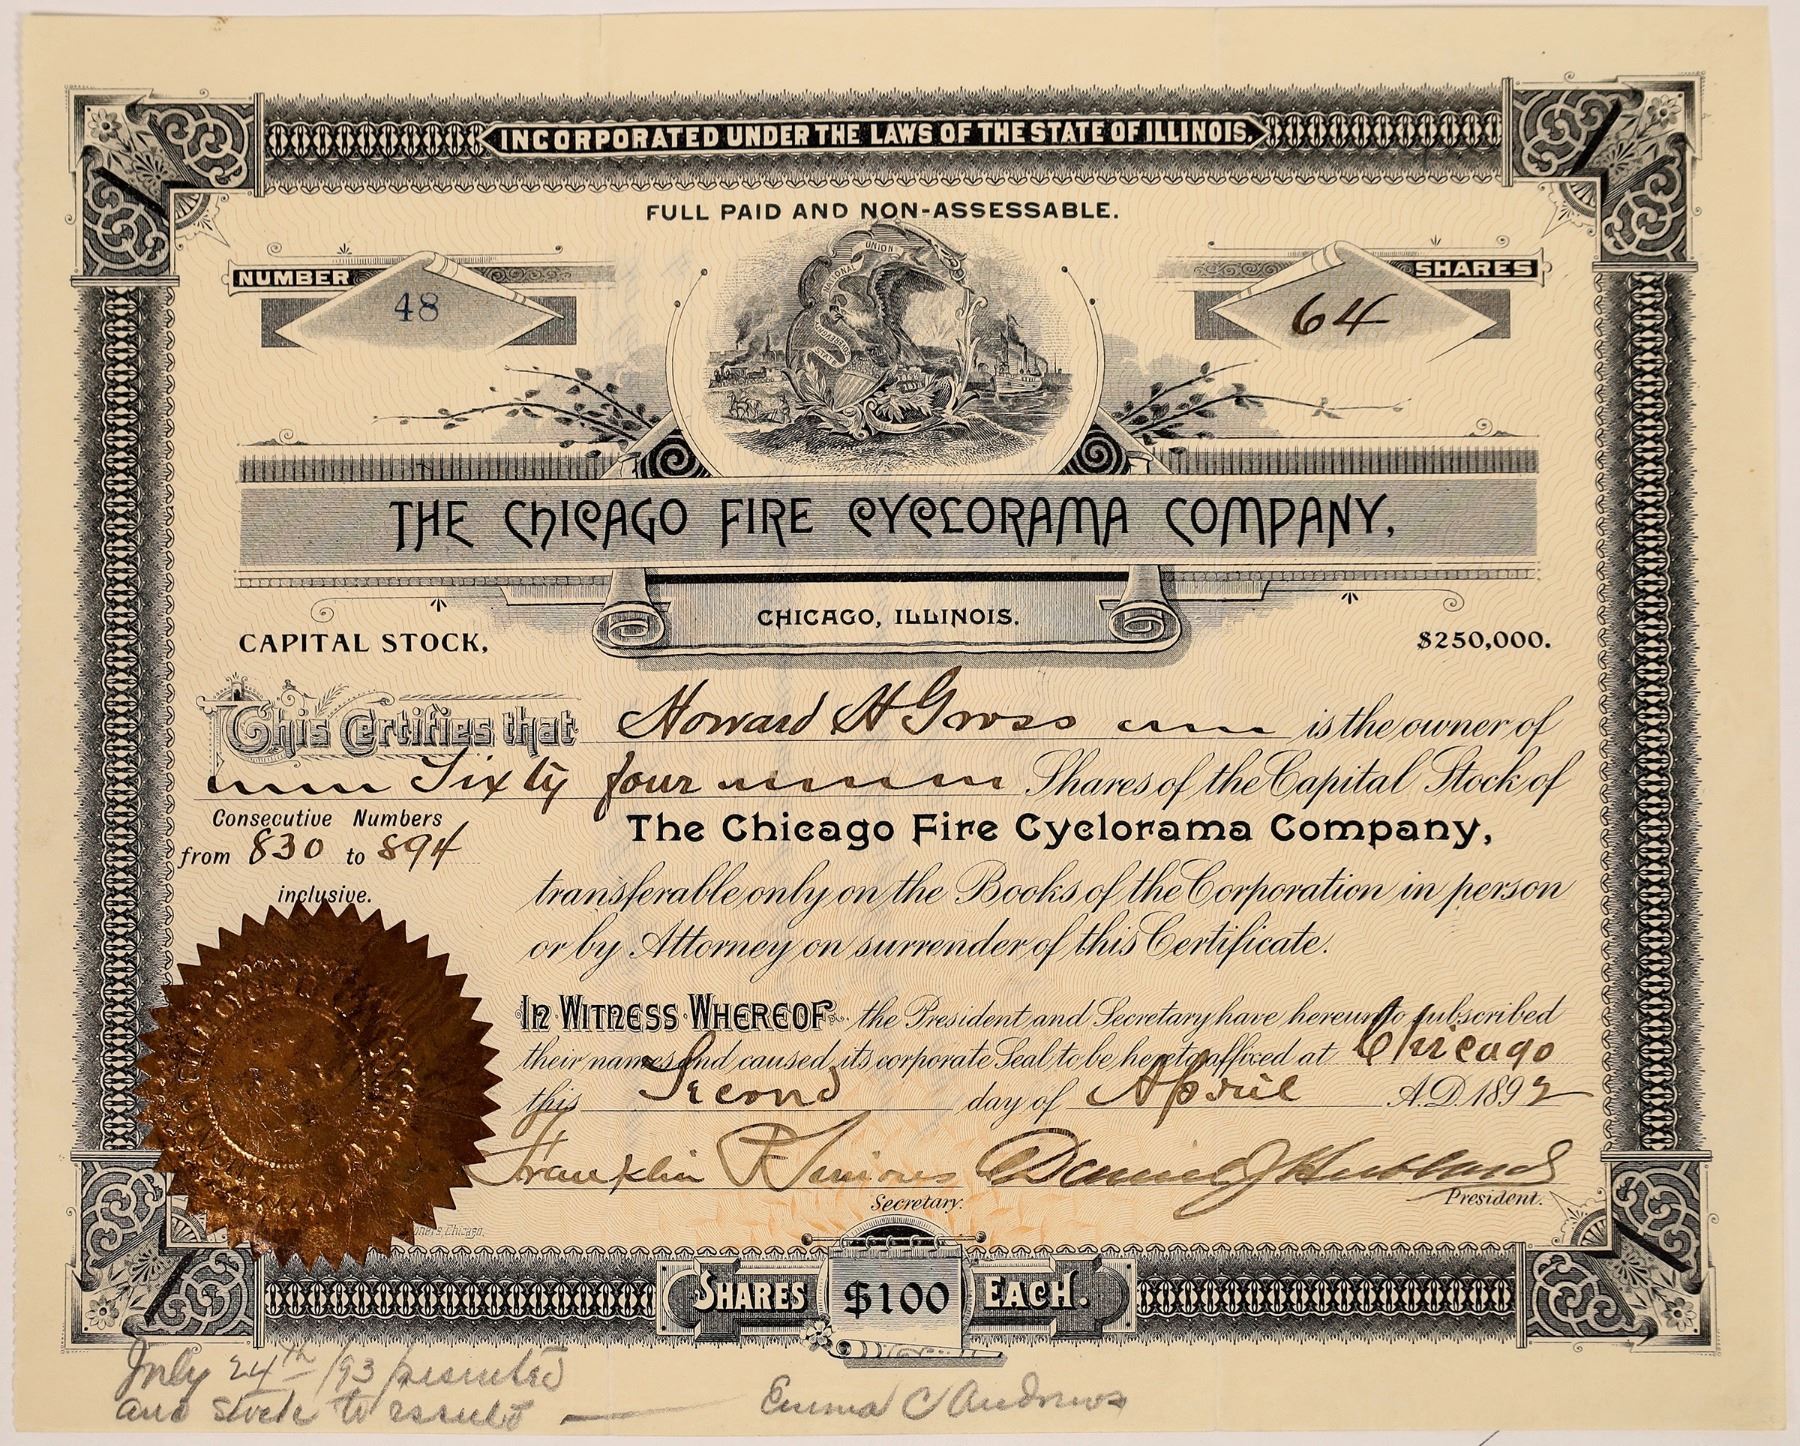 INCORPORATED UNDER THE LAWS OF THE STATE OF ILLINOIS.
FULL PAID AND NON-ASSESSABLE.
NUMBER
48
SHARES
64
NATIONAL UNION
STATE
THE CHICAGO FIRE CYCLORAMA COMPANY,
CHICAGO, ILLINOIS.
CAPITAL STOCK,
$250,000.
This Certifies that Howard H Gross is the owner of
Sixty four Shares of the Capital Stock of
Consecutive Numbers
from 830 to 894
inclusive.
The Chicago Fire Cyclorama Company,
transferable only on the Books of the Corporation in person
or by Attorney on surrender of this Certificate.
IN WITNESS WHEREOF the President and Secretary have hereunto subscribed
their names and caused its corporate Seal to be hereto affixed at Chicago
this Second day of April A.D. 1892
Franklin
Secretary.
President.
Chicago.
SHARES $100 EACH.
July 24th /93 presented
and stock to
Emma C Andrews